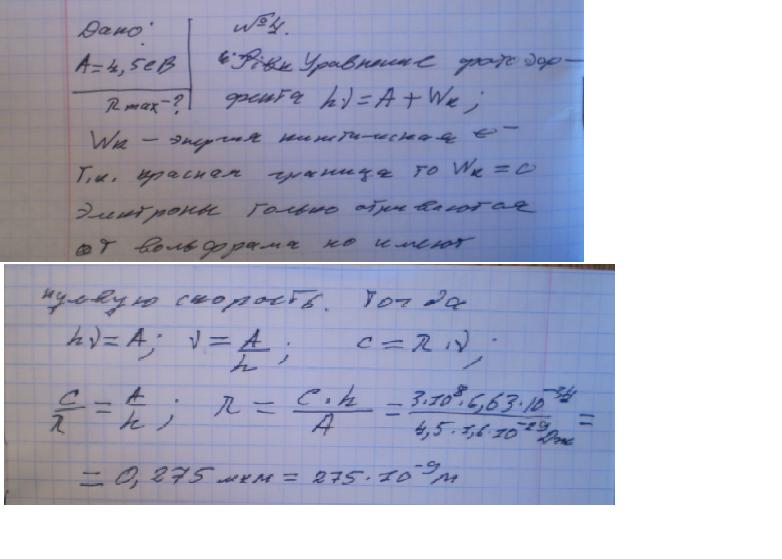 Дано:
№4.
A=4,5eB
Уравнение фотоэф-
λmax-?
фекта hν=A+Wк;
Wк – энергия кинетическая e-
Т.к. красная граница то Wк=0
электроны только отрываются
от вольфрама но имеют
нулевую скорость. Тогда
hν=A; ν=A/h; c=λ·ν;
c/λ=A/h; λ=c·h/A=3·10^8·6,63·10^-34/4,5·1,6·10^-19Дж=
=0,275 мкм=275·10^-9м